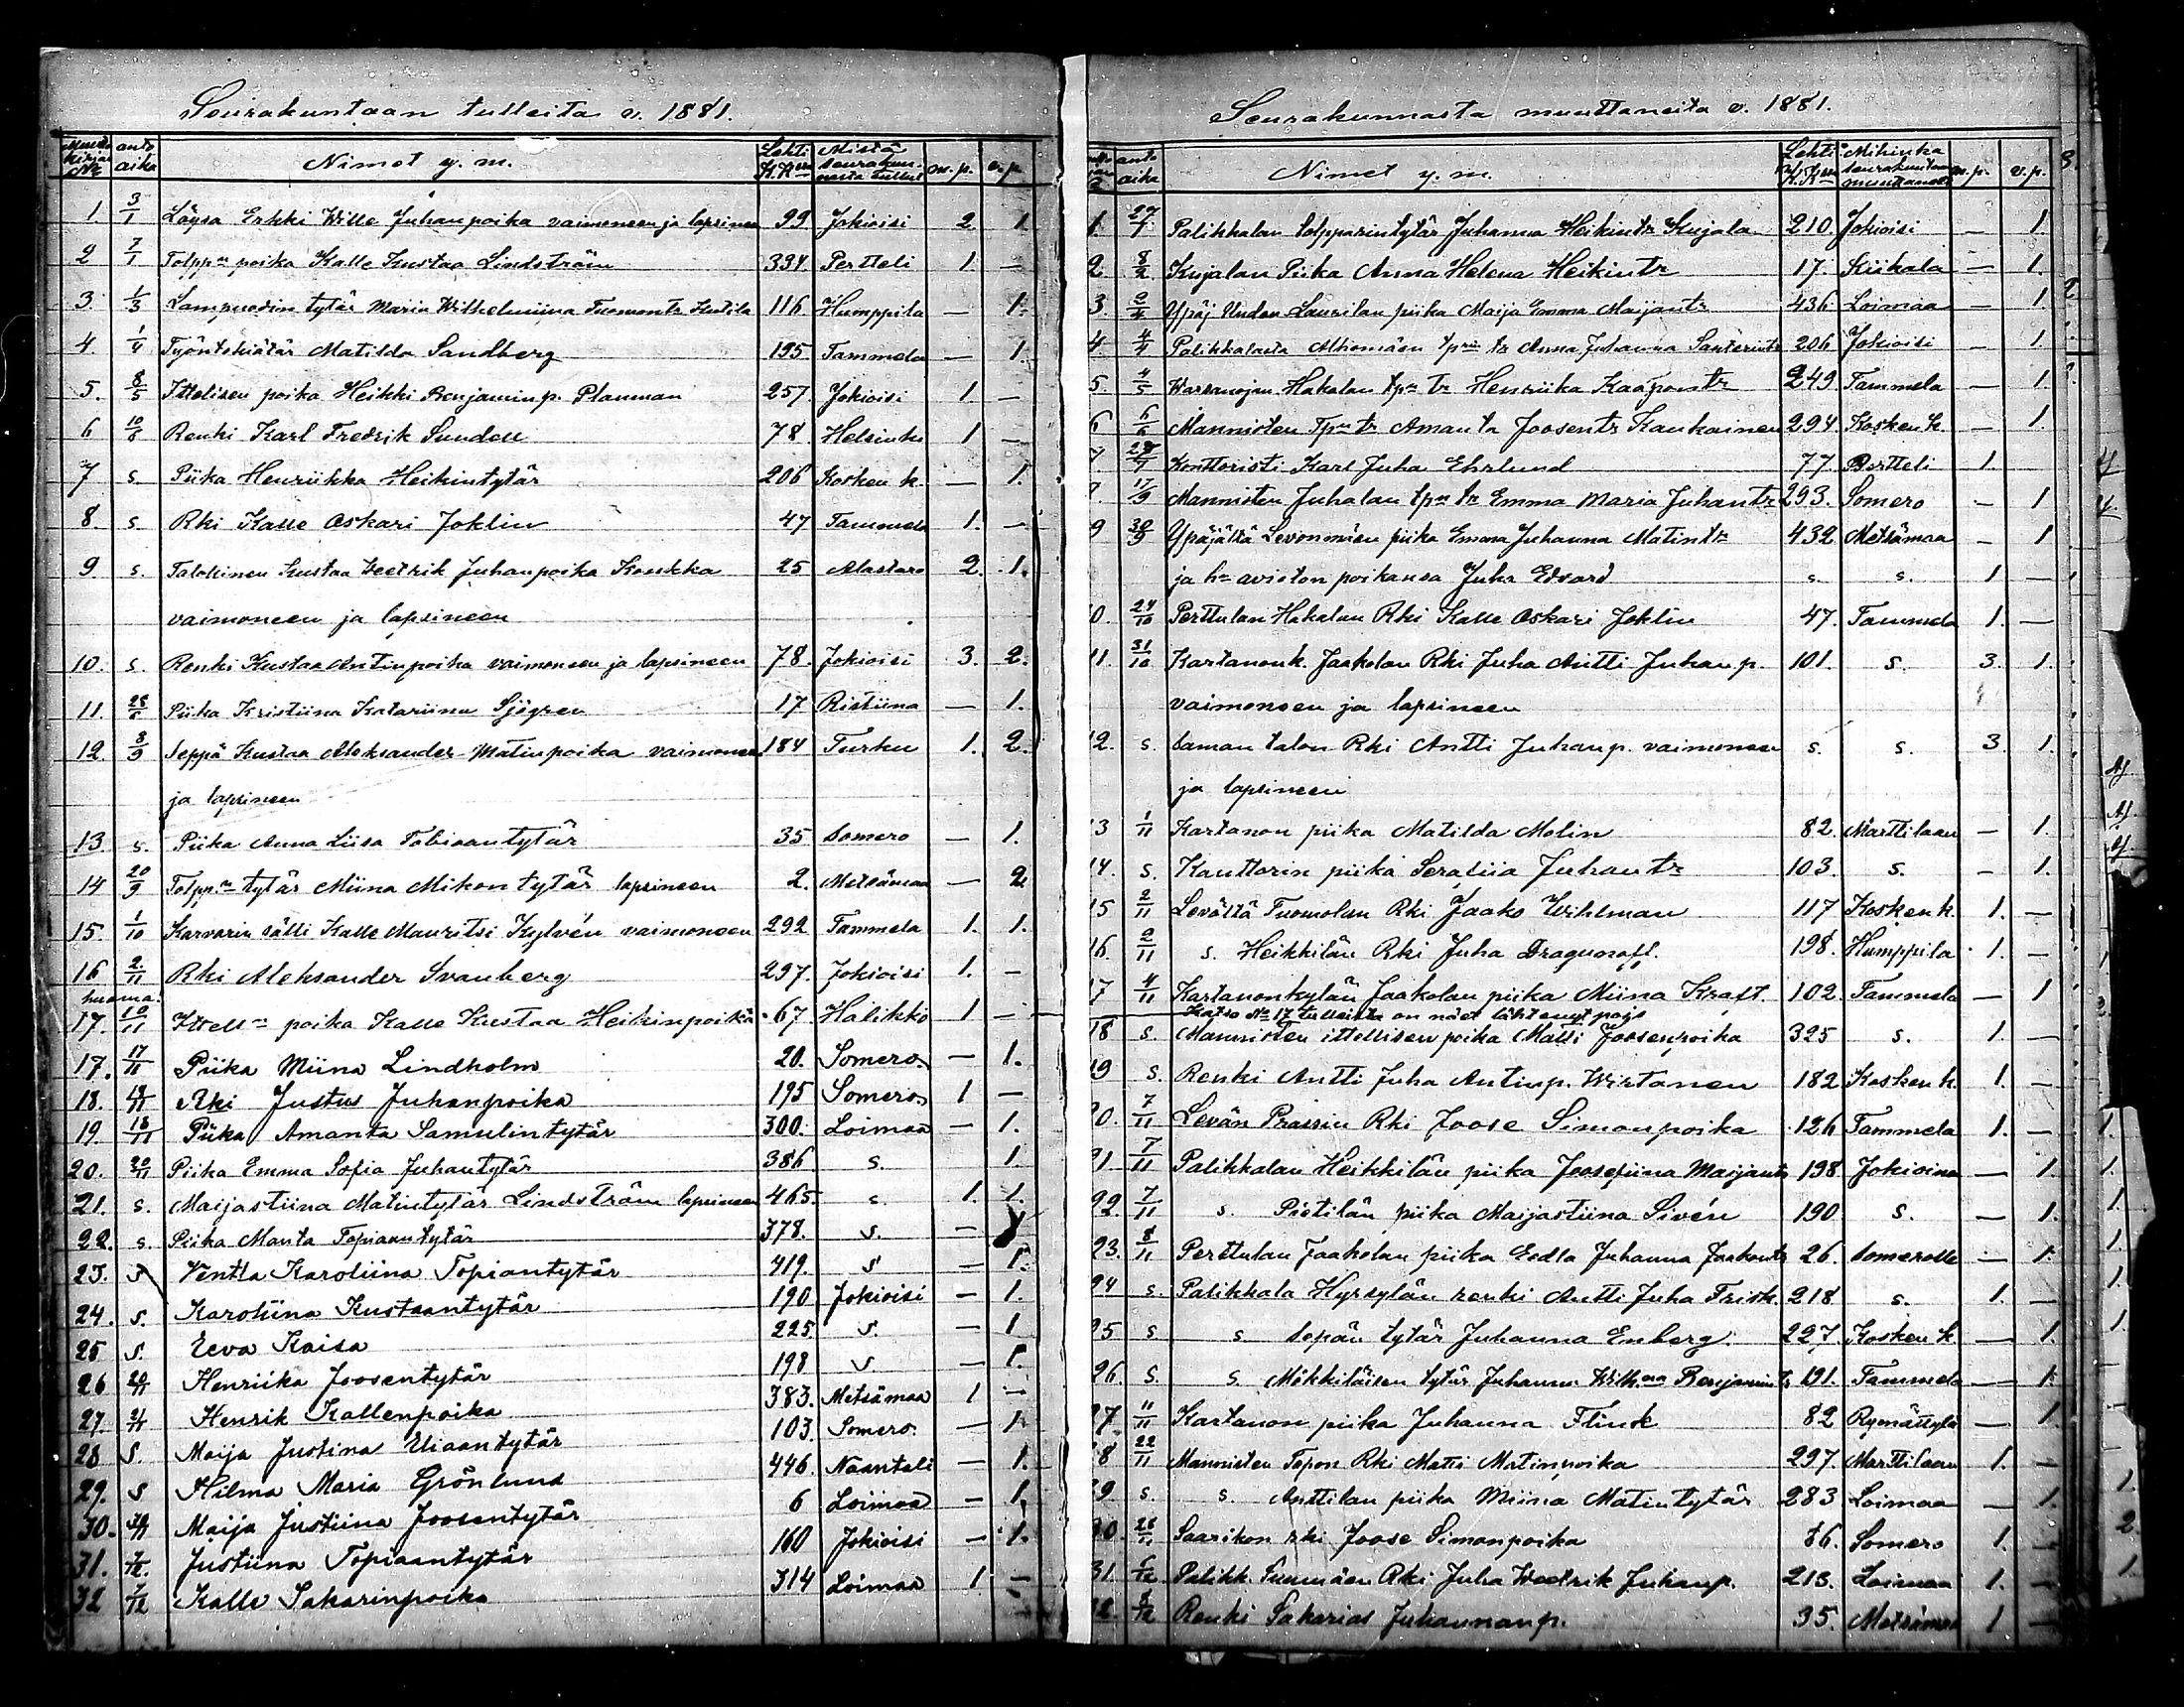 Seurakuntaan tulleita v. 1881.
Muutto kirjan № anto aika Nimet y. m. Lehti K.K:ssa Mistä seurakunnasta tulleet m.p. v.p.
1 3/1 Löysä Erkki Wille Juhanpoika vaimoneen ja lapsineen 99 Jokioisi 2 1
2 7/1 Tolpp:n poika Kalle Kustaa Lindström 394 Pertteli 1. —
3. 1/3 Lampuodin tytär Maria Wilhelmiina Tuomontr Kutila 116 Humppila — 1.
4. 1/4 Työntekiätär Matilda Sandberg 195 Tammela — 1.
5. 8/5 Ittelisen poika Heikki Benjaminp. Planman 257. Jokioisi 1. —
6 10/8 Renki Karl Fredrik Sundell 78. Helsinki 1 —
7 s. Piika Henriikka Heikintytär 206 Kosken k. — 1.
8. s. Rki Kalle Oskari Joklin 47 Tammela 1. —
9. s. Talollinen Kustaa Veetrik Juhanpoika Konkka 25 Alastaro 2. 1.
vaimoneen ja lapsineen
10. s. Renki Kustaa Antinpoika vaimoneen ja lapsineen 78. Jokioisi 3. 2.
11. Piika Kristiina Katariina Sjögren 17 Ristiina — 1.
12. 8/9 Seppä Kustaa Aleksander Matinpoika vaimoneen 184 Turku 1. 2.
ja lapsineen
13. s. Piika Anna Liisa Tobiaantytär 35 Somero — 1.
14 20/9 Tolpp:n tytär Miina Mikontytär lapsineen 2. Metsämaa — 2
15. 1/10 Karvarin sälli Kalle Mauritsi Kylvén vaimoneen 292 Tammela 1. 1.
16 2./11 Rki Aleksander Svanberg 297. Jokioisi 1. —
huoma.
17. 10/11 Ittell:n poika Kalle Kustaa Heikinpoika 67. Halikko 1 —
17. 17/11 Piika Miina Lindholm 20. Somero. — 1.
18. Rki Justus Juhanpoika 195 Somero 1 —
19 18/11 Piika Amanta Samulintytär 300. Loimaa — 1.
20. 20/11 Piika Emma Sofia Juhantytär 386 s. 1.
21. s. Maijastiina Matintytär Lindström lapsineen 465. s. 1. 1.
22. s. Piika Manta Topiaantytär 378. s. —
23. s. Ventla Karoliina Topiantytär 419. s — 1.
24. s. Karoliina Kustaantytär 190 Jokioisi — 1.
25 s. Eeva Kaisa 225. s. — 1
26 20/11 Henriika Joosentytär 198 s. — 1.
27. Henrik Kallenpoika 383. Metsämaa 1 —
28 s. Maija Justina Uiaantytär 103. Somero. — 1.
29. s Hilma Maria Grönlund 446. Naantali — 1.
30. Maija Justiina Joosentytär 6 Loimaa — 1.
31. Justiina Topiaantytär 160 Jokioisi — 1.
32 Kalle Sakarinpoika 314 Loimaa 1 —
Seurakunnasta muuttaneita v. 1881.
anto aika Nimet y. m. Lehti K.K:ssa Mihinkä seurakuntaan muuttaneet m.p. v.p.
1. Palikkalan tolpparintytär Juhanna Heikintr Kujala 210. Jokioisi — 1.
2 8/2 Kujalan Piika Anna Helena Heikintr 17. Kiikala — 1.
3. 2/4 Ypäj Uuden Laurilan piika Maija Emma Maijantr 436. Loimaa — 1.
4. 4/4 Palikkalasta Alhomäen tp:rin tr Anna Juhanna Santerintr 206 Jokioisi — 1.
5. 4/5 Warsanojan Hakalan tp:n tr Henriika Kaaponstr 249. Tammela — 1.
6 6/6 Mannisten Tp:n tr Amanta Joosentr Kankainen 294. Kosken k. — 1.
7. 28/7 Konttoristi Karl Juha Ehrlund 77. Pertteli 1.
8. 17/9 Mannisten Juhalan tp:n tr Emma Maria Juhantr 293. Somero — 1
9 30/9 Ypäjältä Levonmäen piika Emma Juhanna Matintr 432 Metsämaa — 1
ja h:n avioton poikansa Juha Edvard s. s. 1 —
0. 24/10 Perttulan Hakalan Rki Kalle Oskari Joklin 47. Tammela 1. —
11. 31/10 Kartanonk. Jaakolan Rki Juha Antti Juhanp. 101. s. 3. 1.
vaimoneen ja lapsineen
12. s. saman talon Rki Antti Juhanp. vaimoneen s. s. 3 1.
ja lapsineen
13 1/11 Kartanon piika Matilda Molin 82. Marttilaan — 1.
14. s. Kanttorin piika Serafiia Juhantr 103. s. — 1.
15 2/11 Levältä Tuomolan Rki Jaako Wihlman 117 Kosken k. 1. —
16. 2/11 s. Heikkilän Rki Juha Dragunoff. 198. Humppila 1. —
17 4/11 Kartanonkylän Jaakolan piika Miina Kraft. 102. Tammela — 1
Katso № 17 tulleista on näet lähtenyt pojs
18 s. Mannisten ittellisen poika Matti Joosenpoika 325 s. 1. —
19 s. Renki Antti Juha Antinp. Wirtanen 182 Kosken k. 1. —
20. 7/11 Levän Prassin Rki Joose Simonpoika 126 Tammela 1. —
21 7/11 Palikkalan Heikkilän piika Joosefiina Maijantr 198 Jokioinen — 1.
22. 7/11 s. Pietilän piika Maijastiina Sivén 190 s. — 1.
23. 8/11 Perttulan Jaakolan piika Eedla Juhanna Jaakontr 26. Somerolle — 1.
24 s. Palikkala Hyrsylän renki Antti Juha Frisk. 218 s. 1. —
25 s s. Sepän tytär Juhanna Enberg. 227. Kosken k — 1.
26. s. s. Mökkiläisen tytär Juhanna Wilh:na Benjamintr 191. Tammela — 1.
27. 11/11 Kartanon piika Juhanna Flink 82 Rymättylä — 1
28 22/11 Mannisten Topon Rki Matti Matinpoika 297. Marttilaan 1. —
29 s. s. Anttilan piika Miina Matintytär 283 Loimaa — 1.
30. Saarikon rki Joose Simonpoika 86. Somero 1. —
31. Palikk. Rki Juha Weetrik Juhanp. 213. Loimaa 1. —
32. Renki Sakarias Juhannanp. 35. Metsämaa 1 —